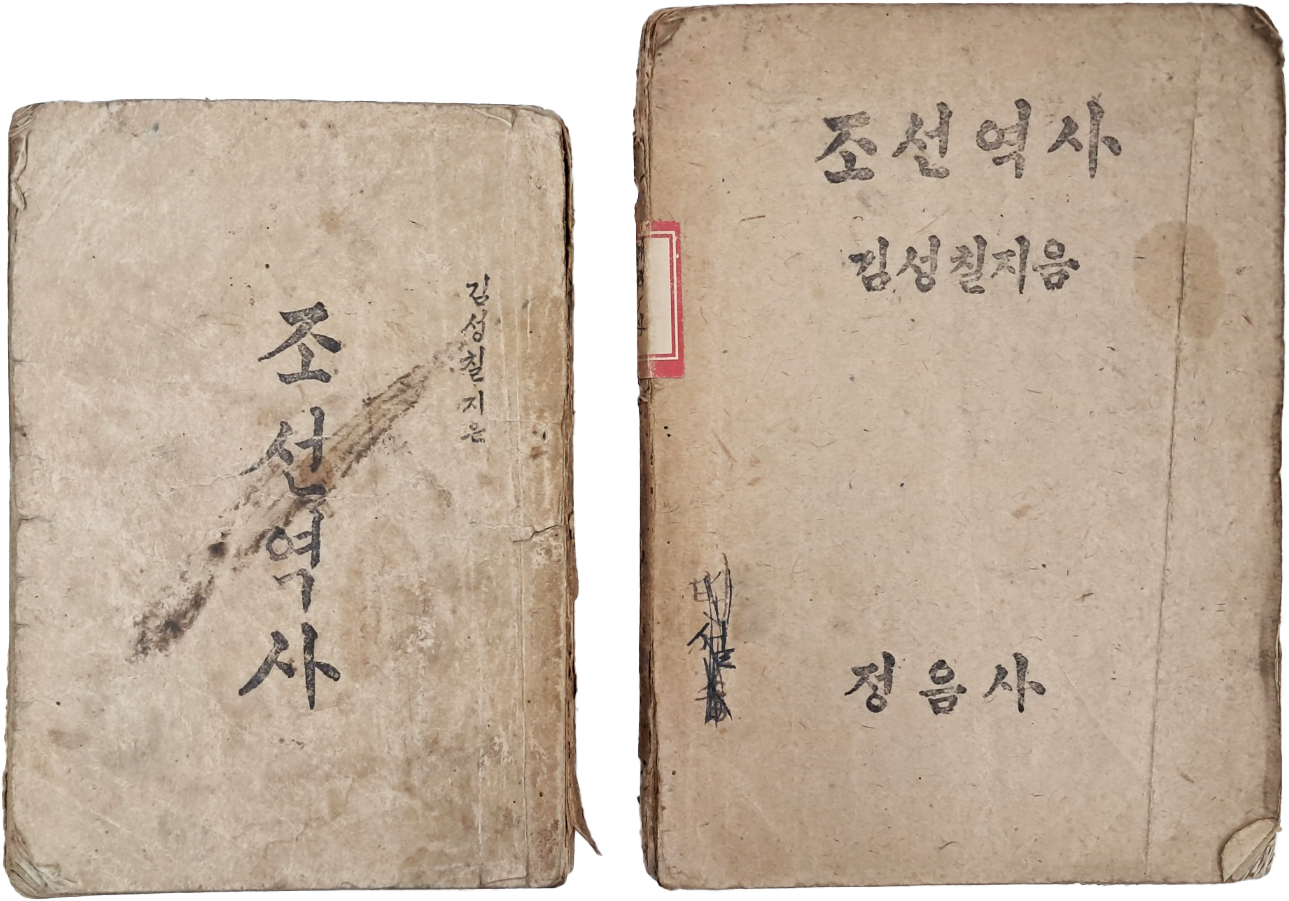 조선역사
김성칠지은
조선역사
김성칠지음
정음사